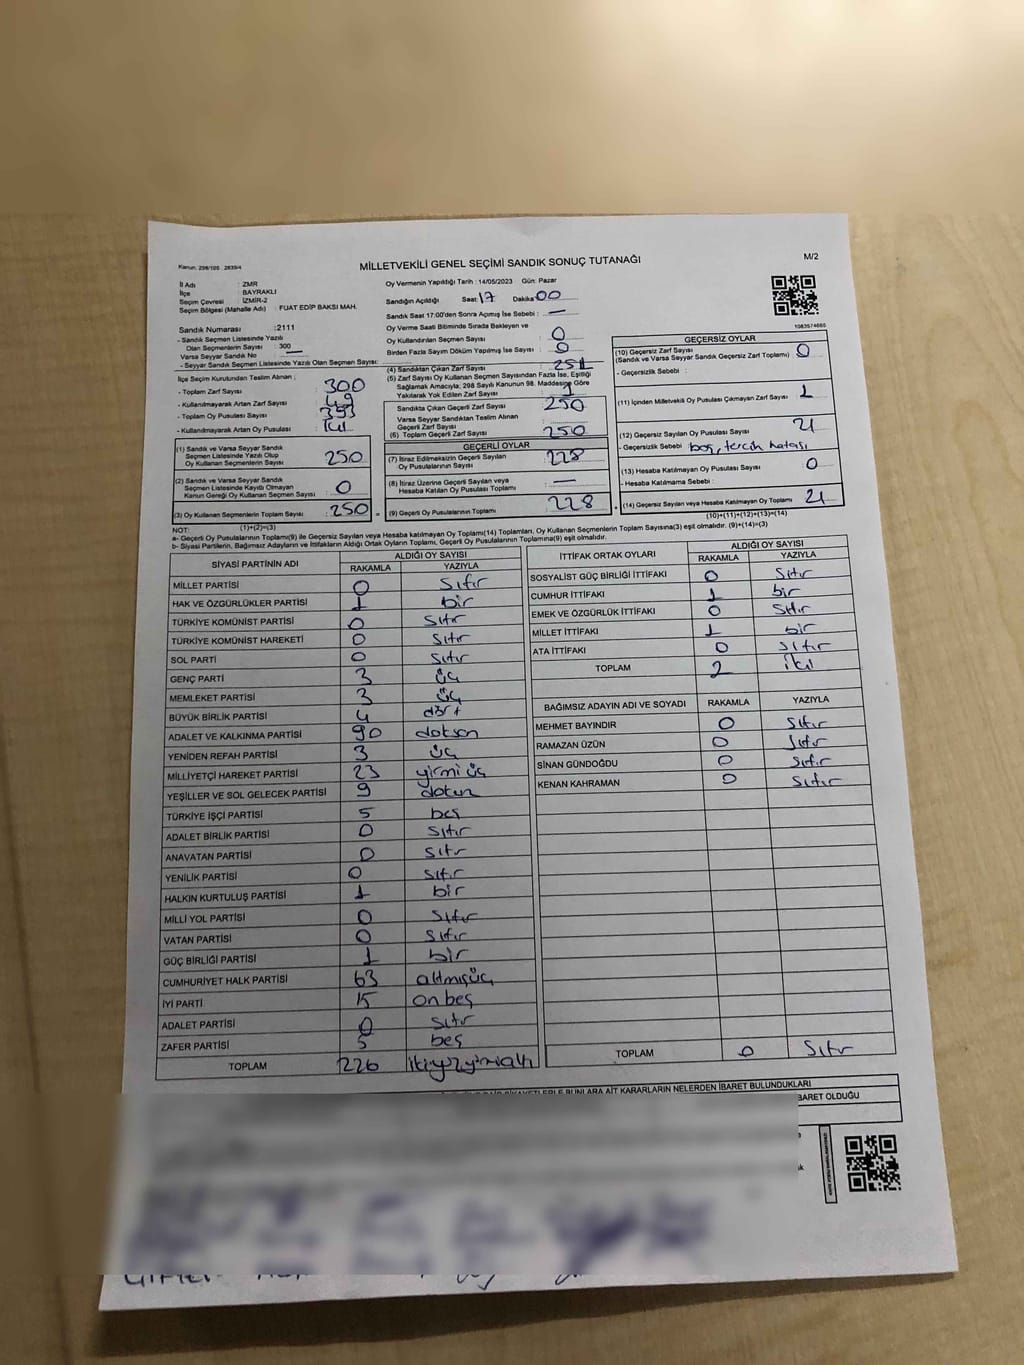 Kanun: 298/105 2839/4
MİLLETVEKİLİ GENEL SEÇİMİ SANDIK SONUÇ TUTANAĞI
M/2
İl Adı : ZMR
İlçe : BAYRAKLI
Seçim Çevresi : İZMİR-2
Seçim Bölgesi (Mahalle Adı) : FUAT EDİP BAKSI MAH.
Sandık Numarası : 2111
- Sandık Seçmen Listesinde Yazılı
Olan Seçmenlerin Sayısı : 300
Varsa Seyyar Sandık No : —
- Seyyar Sandık Seçmen Listesinde Yazılı Olan Seçmen Sayısı:
İlçe Seçim Kurulundan Teslim Alınan ;
- Toplam Zarf Sayısı : 300
- Kullanılmayarak Artan Zarf Sayısı : 49
- Toplam Oy Pusulası Sayısı
- Kullanılmayarak Artan Oy Pusulası :
(1) Sandık ve Varsa Seyyar Sandık
Seçmen Listesinde Yazılı Olup
Oy Kullanan Seçmenlerin Sayısı : 250
(2) Sandık ve Varsa Seyyar Sandık
Seçmen Listesinde Kayıtlı Olmayan
Kanun Gereği Oy Kullanan Seçmen Sayısı : 0
(3) Oy Kullanan Seçmenlerin Toplam Sayısı : 250
(1)+(2)=(3)
Oy Vermenin Yapıldığı Tarih : 14/05/2023 Gün: Pazar
Sandığın Açıldığı Saat: 17 Dakika: 00
Sandık Saat 17:00'den Sonra Açılmış İse Sebebi : —
Oy Verme Saati Bitiminde Sırada Bekleyen ve
Oy Kullandırılan Seçmen Sayısı : 0
Birden Fazla Sayım Döküm Yapılmış İse Sayısı : 0
(4) Sandıktan Çıkan Zarf Sayısı : 251
(5) Zarf Sayısı Oy Kullanan Seçmen Sayısından Fazla İse, Eşitliği
Sağlamak Amacıyla; 298 Sayılı Kanunun 98. Maddesine Göre
Yakılarak Yok Edilen Zarf Sayısı : 1
Sandıkta Çıkan Geçerli Zarf Sayısı : 250
Varsa Seyyar Sandıktan Teslim Alınan
Geçerli Zarf Sayısı :
(6) Toplam Geçerli Zarf Sayısı : 250
GEÇERLİ OYLAR
(7) İtiraz Edilmeksizin Geçerli Sayılan
Oy Pusulalarının Sayısı : 228
(8) İtiraz Üzerine Geçerli Sayılan veya
Hesaba Katılan Oy Pusulası Toplamı : —
(9) Geçerli Oy Pusulalarının Toplamı : 228
1083574685
GEÇERSİZ OYLAR
(10) Geçersiz Zarf Sayısı
(Sandık ve Varsa Seyyar Sandık Geçersiz Zarf Toplamı) : 0
- Geçersizlik Sebebi :
(11) İçinden Milletvekili Oy Pusulası Çıkmayan Zarf Sayısı : 1
(12) Geçersiz Sayılan Oy Pusulası Sayısı : 21
- Geçersizlik Sebebi : boş, tercih hatası
(13) Hesaba Katılmayan Oy Pusulası Sayısı : 0
- Hesaba Katılmama Sebebi :
(14) Geçersiz Sayılan veya Hesaba Katılmayan Oy Toplamı : 21
(10)+(11)+(12)+(13)=(14)
NOT:
a- Geçerli Oy Pusulalarının Toplamı(9) ile Geçersiz Sayılan veya Hesaba katılmayan Oy Toplamı(14) Toplamları, Oy Kullanan Seçmenlerin Toplam Sayısına(3) eşit olmalıdır. (9)+(14)=(3)
b- Siyasi Partilerin, Bağımsız Adayların ve İttifakların Aldığı Ortak Oyların Toplamı, Geçerli Oy Pusulalarının Toplamına(9) eşit olmalıdır.
SİYASİ PARTİNİN ADI ALDIĞI OY SAYISI
RAKAMLA YAZIYLA
MİLLET PARTİSİ 0 sıfır
HAK VE ÖZGÜRLÜKLER PARTİSİ 1 bir
TÜRKİYE KOMÜNİST PARTİSİ 0 sıfır
TÜRKİYE KOMÜNİST HAREKETİ 0 sıfır
SOL PARTİ 0 sıfır
GENÇ PARTİ 3 üç
MEMLEKET PARTİSİ 3 üç
BÜYÜK BİRLİK PARTİSİ 4 dört
ADALET VE KALKINMA PARTİSİ 90 doksan
YENİDEN REFAH PARTİSİ 3 üç
MİLLİYETÇİ HAREKET PARTİSİ 23 yirmi üç
YEŞİLLER VE SOL GELECEK PARTİSİ 9 dokuz
TÜRKİYE İŞÇİ PARTİSİ 5 beş
ADALET BİRLİK PARTİSİ 0 sıfır
ANAVATAN PARTİSİ 0 sıfır
YENİLİK PARTİSİ 0 sıfır
HALKIN KURTULUŞ PARTİSİ 1 bir
MİLLİ YOL PARTİSİ 0 sıfır
VATAN PARTİSİ 0 sıfır
GÜÇ BİRLİĞİ PARTİSİ 1 bir
CUMHURİYET HALK PARTİSİ 63 altmışüç
İYİ PARTİ 15 on beş
ADALET PARTİSİ 0 sıfır
ZAFER PARTİSİ 5 beş
TOPLAM 226 ikiyüzyirmialtı
İTTİFAK ORTAK OYLARI ALDIĞI OY SAYISI
RAKAMLA YAZIYLA
SOSYALİST GÜÇ BİRLİĞİ İTTİFAKI 0 sıfır
CUMHUR İTTİFAKI 1 bir
EMEK VE ÖZGÜRLÜK İTTİFAKI 0 sıfır
MİLLET İTTİFAKI 1 bir
ATA İTTİFAKI 0 sıfır
TOPLAM 2 iki
BAĞIMSIZ ADAYIN ADI VE SOYADI RAKAMLA YAZIYLA
MEHMET BAYINDIR 0 sıfır
RAMAZAN ÜZÜN 0 sıfır
SİNAN GÜNDOĞDU 0 sıfır
KENAN KAHRAMAN 0 sıfır
TOPLAM 0 sıfır
BUNLARA AİT KARARLARIN NELERDEN İBARET BULUNDUKLARI
BARET OLDUĞU